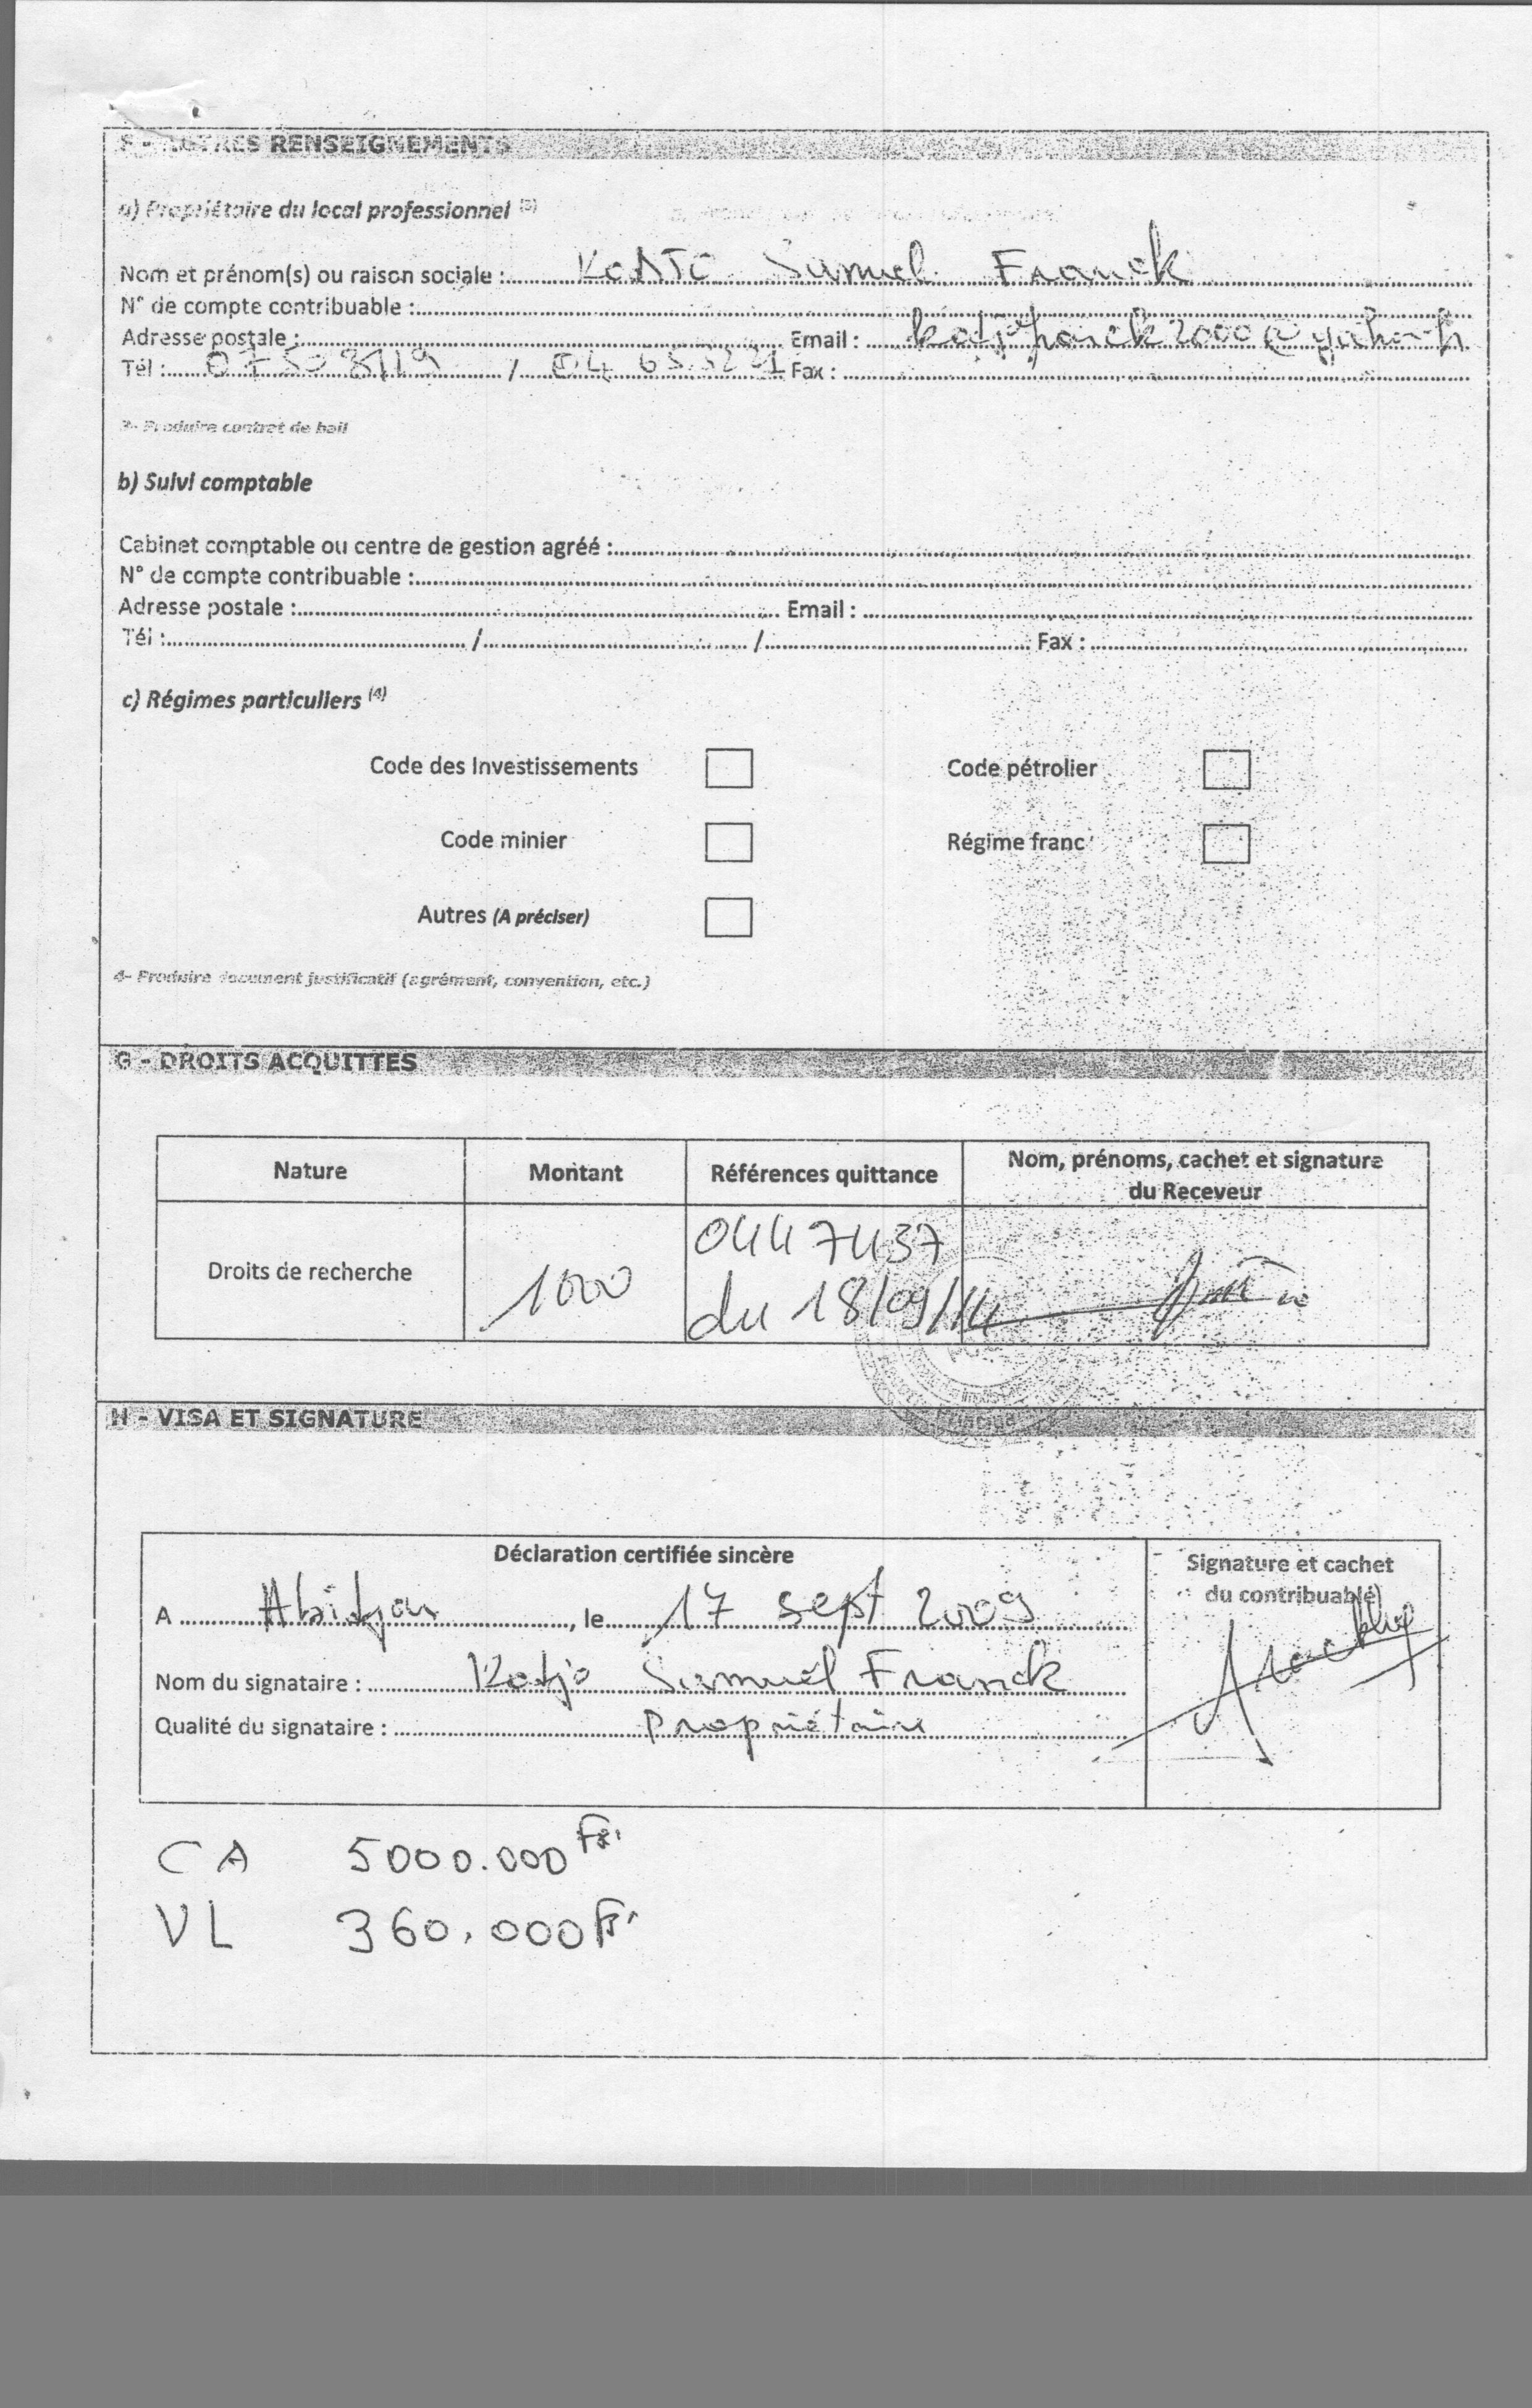 F - AUTRES RENSEIGNEMENTS
a) Propriétaire du local professionnel (3)
Nom et prénom(s) ou raison sociale : KoDJo Samuel Franck
N° de compte contribuable :
Adresse postale : Email :
Tél : / Fax :
3- Produire contrat de bail
b) Suivi comptable
Cabinet comptable ou centre de gestion agréé :
N° de compte contribuable :
Adresse postale : Email :
Tél : / / Fax :
c) Régimes particuliers (4)
Code des Investissements Code pétrolier
Code minier Régime franc
Autres (A préciser)
4- Produire document justificatif (agrément, convention, etc.)
G - DROITS ACQUITTES
Nature Montant Références quittance Nom, prénoms, cachet et signature du Receveur
Droits de recherche 1000 0447437
du 18/09/14
H - VISA ET SIGNATURE
Déclaration certifiée sincère
Signature et cachet
du contribuable)
A Abidjan, le 17 sept 2009
Nom du signataire : Kodjo Samuel Franck
Qualité du signataire : Propriétaire
CA 5000.000 Frs
VL 360.000 Frs